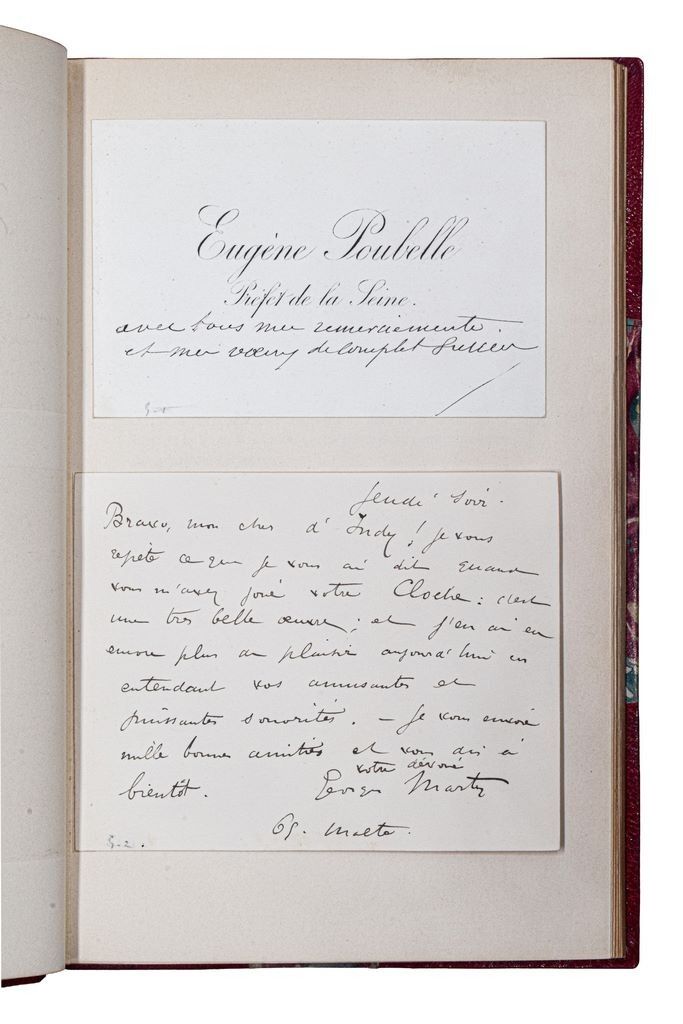 Eugène Poubelle
Préfet de la Seine.
avec tous mes remerciements.
et mes vœux de complet succès
5-1
Jeudi soir.
Bravo, mon cher d'Indy! je vous
répète ce que je vous ai dit quand
vous m'avez joué votre Cloche: c'est
une très belle œuvre; et j'en ai eu
encore plus de plaisir aujourd'hui en
entendant vos amusantes et
puissantes sonorités. — Je vous envoie
mille bonnes amitiés et vous dis à
bientôt.
votre dévoué
Georges Marty
69. Malte.
5-2.